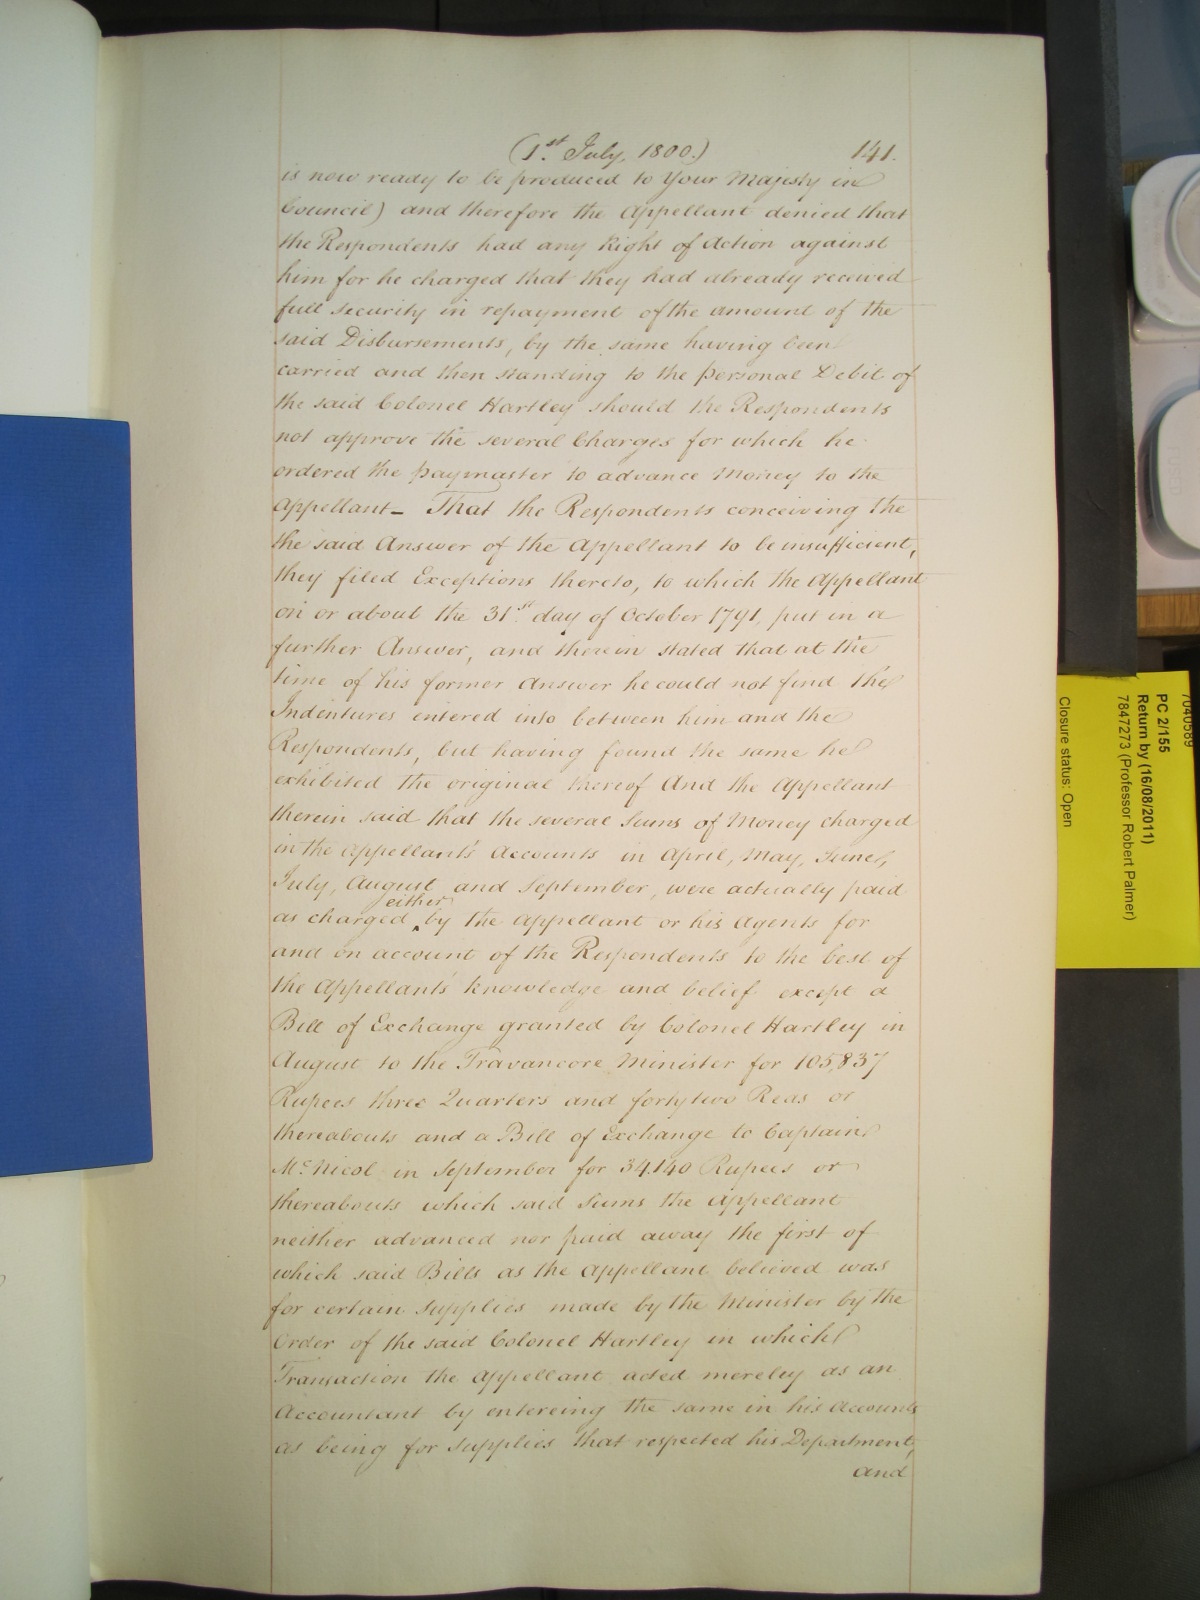 (1st July, 1800.) 141.
is now ready to be produced to Your Majesty in
Council) and therefore the Appellant denied that
the Respondents had any Right of Action against
him for he charged that they had already received
full security in repayment of the amount of the
said Disbursements, by the same having been
carried and then standing to the personal Debit of
the said Colonel Hartley should the Respondents
not approve the several Charges for which he
ordered the paymaster to advance Money to the
Appellant_ That the Respondents conceiving the
the said Answer of the Appellant to be insufficient,
they filed Exceptions thereto, to which the Appellant
on or about the 31st day of October 1791, put in a
further Answer, and therein stated that at the
time of his former Answer he could not find the
Indentures entered into between him and the
Respondents, but having found the same he
exhibited the original thereof And the Appellant
therein said that the several Sums of Money charged
in the Appellant's Accounts in April, May, June,
July, August and September, were actually paid
as charged either by the Appellant or his Agents for
and on account of the Respondents to the best of
the Appellant's knowledge and belief except a
Bill of Exchange granted by Colonel Hartley in
August to the Travancore Minister for 105,837
Rupees three Quarters and forty two Reas or
thereabouts and a Bill of Exchange to Captain
McNicol in September for 34.140 Rupees or
thereabouts which said Sums the Appellant
neither advanced nor paid away the first of
which said Bills as the Appellant believed was
for certain Supplies made by the Minister by the
Order of the said Colonel Hartley in which
Transaction the Appellant acted mereley as an
Accountant by entereing the same in his Accounts
as being for Supplies that respected his Department,
and
7040589
PC 2/155
Return by (16/08/2011)
7847273 (Professor Robert Palmer)
Closure status: Open